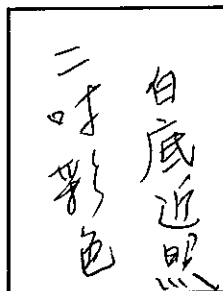 白底近照
二吋彩色